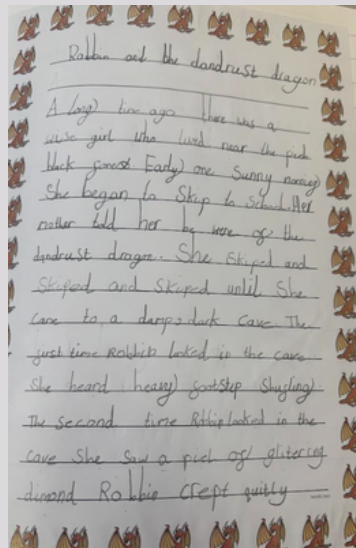 Robbin and the dandrust dragon
A long time ago there was a
wise girl who lived near the pich
black forest Early one Sunny morning
She began to Skip to School. Her
mother told her be were of the
dandrust dragon. She Skiped and
Skiped and Skiped until She
came to a damp, dark cave. The
first time Robbin looked in the cave
She heard heavy footstep Shufling
The Second time Robbin looked in the
cave She Saw a piel of glitering
dimond Robbin crept quitly